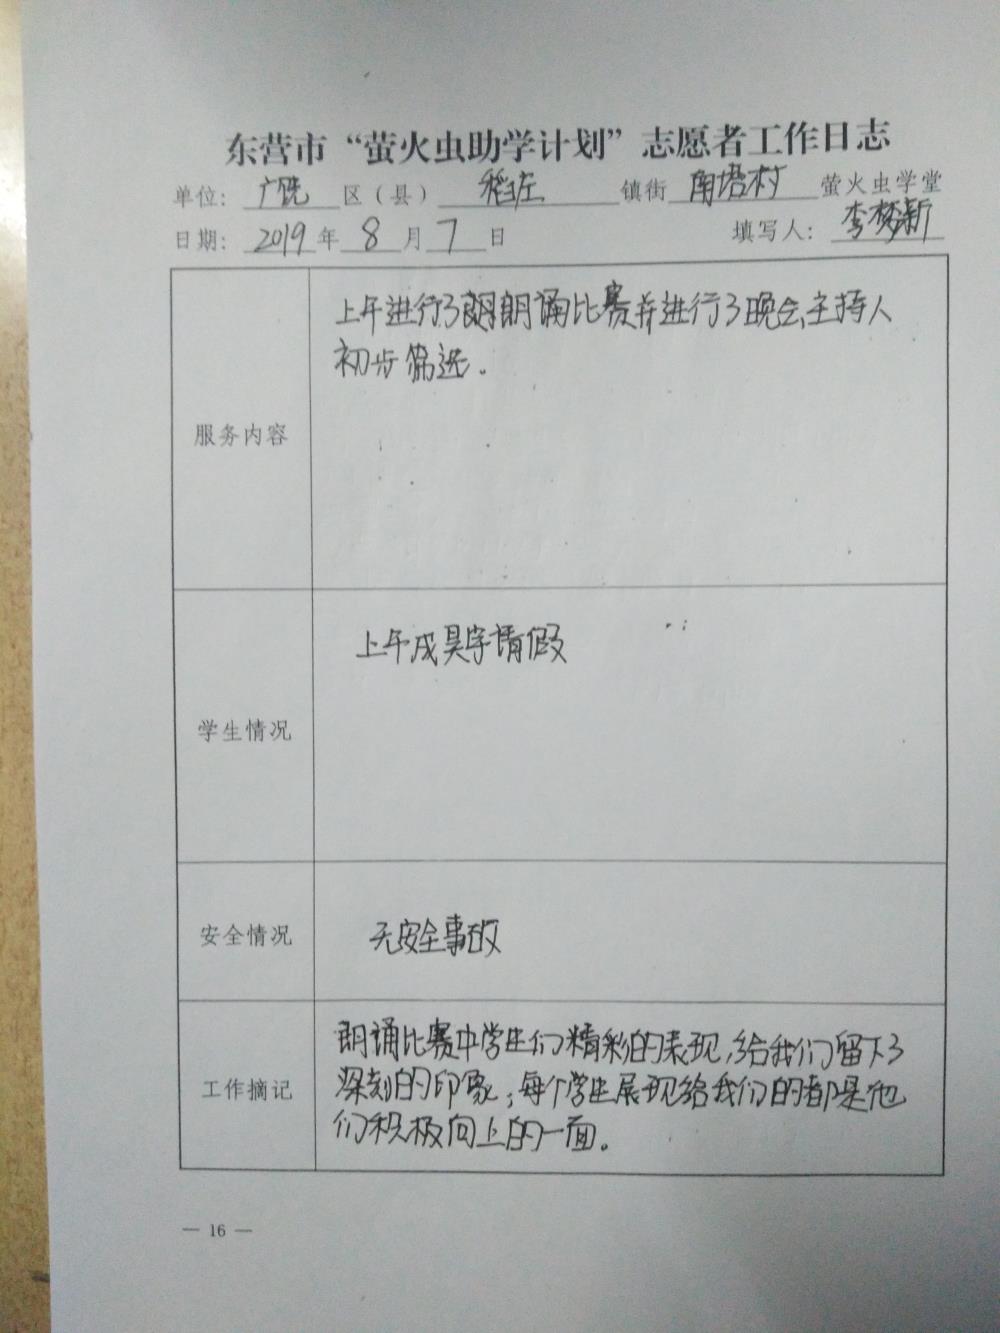 东营市“萤火虫助学计划”志愿者工作日志
单位：广饶区（县）稻庄镇街南塔村萤火虫学堂
日期：2019年8月7日 填写人：李梦新
服务内容
上午进行了朗诵比赛并进行了晚会主持人
初步筛选。
学生情况
上午成昊宇请假
安全情况
无安全事故
工作摘记
朗诵比赛中学生们精彩的表现，给我们留下了
深刻的印象；每个学生展现给我们的都是他
们积极向上的一面。
— 16 —